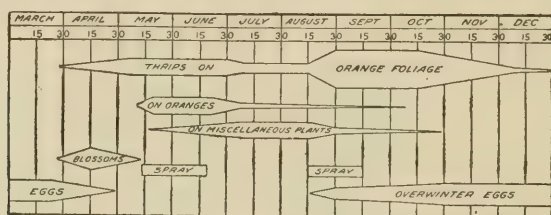 MARCH APRIL MAY JUNE JULY AUGUST SEPT OCT NOV. DEC
15 30 15 30 15 30 15 30 15 30 15 30 15 30 15 30 15 30 15 30
THRIPS ON ORANGE FOLIAGE
ON ORANGES
ON MISCELLANEOUS PLANTS
BLOSSOMS
SPRAY SPRAY
EGGS OVERWINTER EGGS